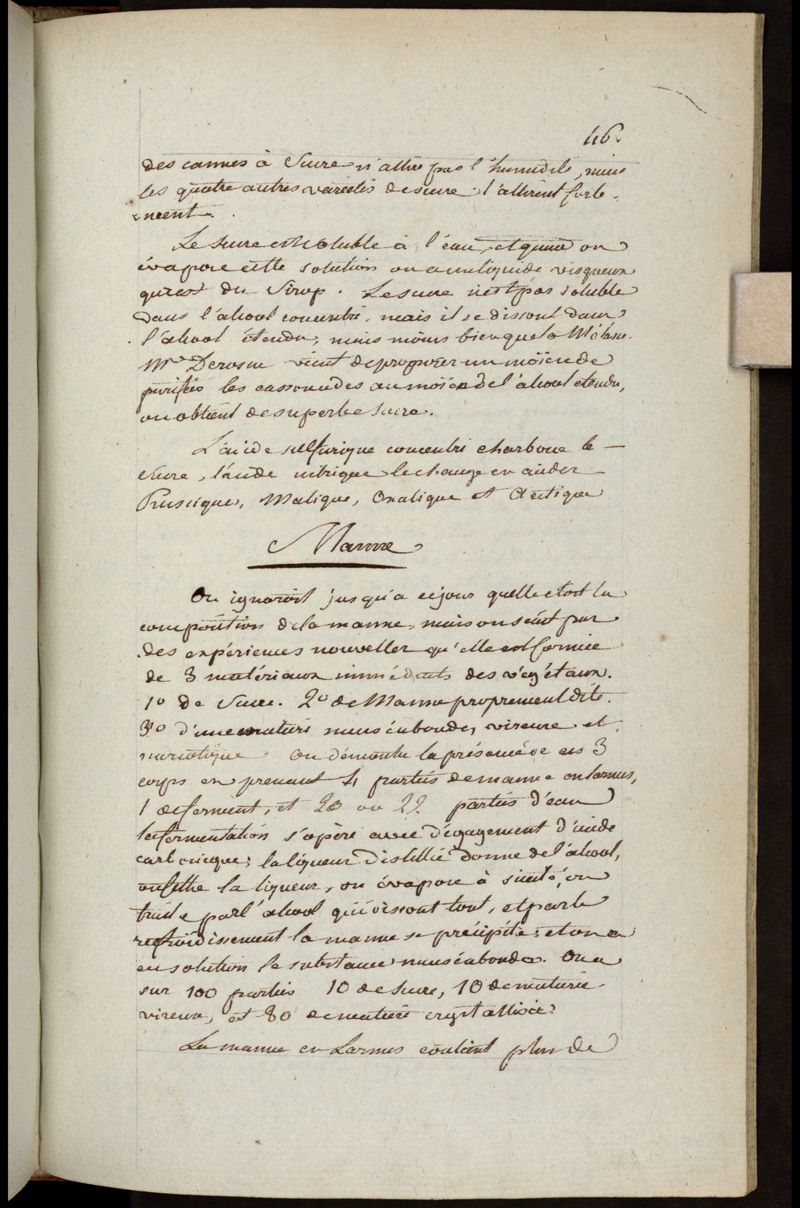 46.
des cannes à Sucre n'attire pas l'humidité, mais
les quatre autres variétés de sucre l'attirent forte-
ment.
Le sucre est soluble à l'eau, et quand on
évapore cette solution on a un liquide visqueux
qui est du Sirop. Le sucre n'est pas soluble
dans l'alcool concentré, mais il se dissout dans
l'alcool étendu, mais moins bien que la Mélasse.
Mr. Derosne vient de proposer un moïen de
purifier les cassonades au moïen de l'alcool étendu,
on obtient de superbe sucre.
L'acide sulfurique concentré charbone le
sucre, l'acide nitrique le change en acides
Prussique, Malique, Oxalique et Acétique
Manne
On ignoroit jusqu'à ce jour quelle étoit la
composition de la manne, mais on sçait par
des expériences nouvelles qu'elle est formée
de 3 matériaux immédiats des végétaux.
1º de Sucre. 2º de Manne proprement dite.
3º d'une matière nauséabonde, vireuse et
narcotique. On démontre la présence de ces 3
corps en prenant 4 parties de manne en larmes,
1 de ferment, et 20 ou 22 parties d'eau
la fermentation s'opère avec dégagement d'acide
carbonique; la liqueur distillée donne de l'alcool,
on filtre la liqueur, on évapore à siccité, on
traite par l'alcool qui dissout tout, et par le
refroidissement la manne se précipite, et on a
en solution la substance nauséabonde. On a
sur 100 parties 10 de sucre, 10 de matière
vireuse, et 80 de matière crystallisée.
La manne en Larmes contient plus de